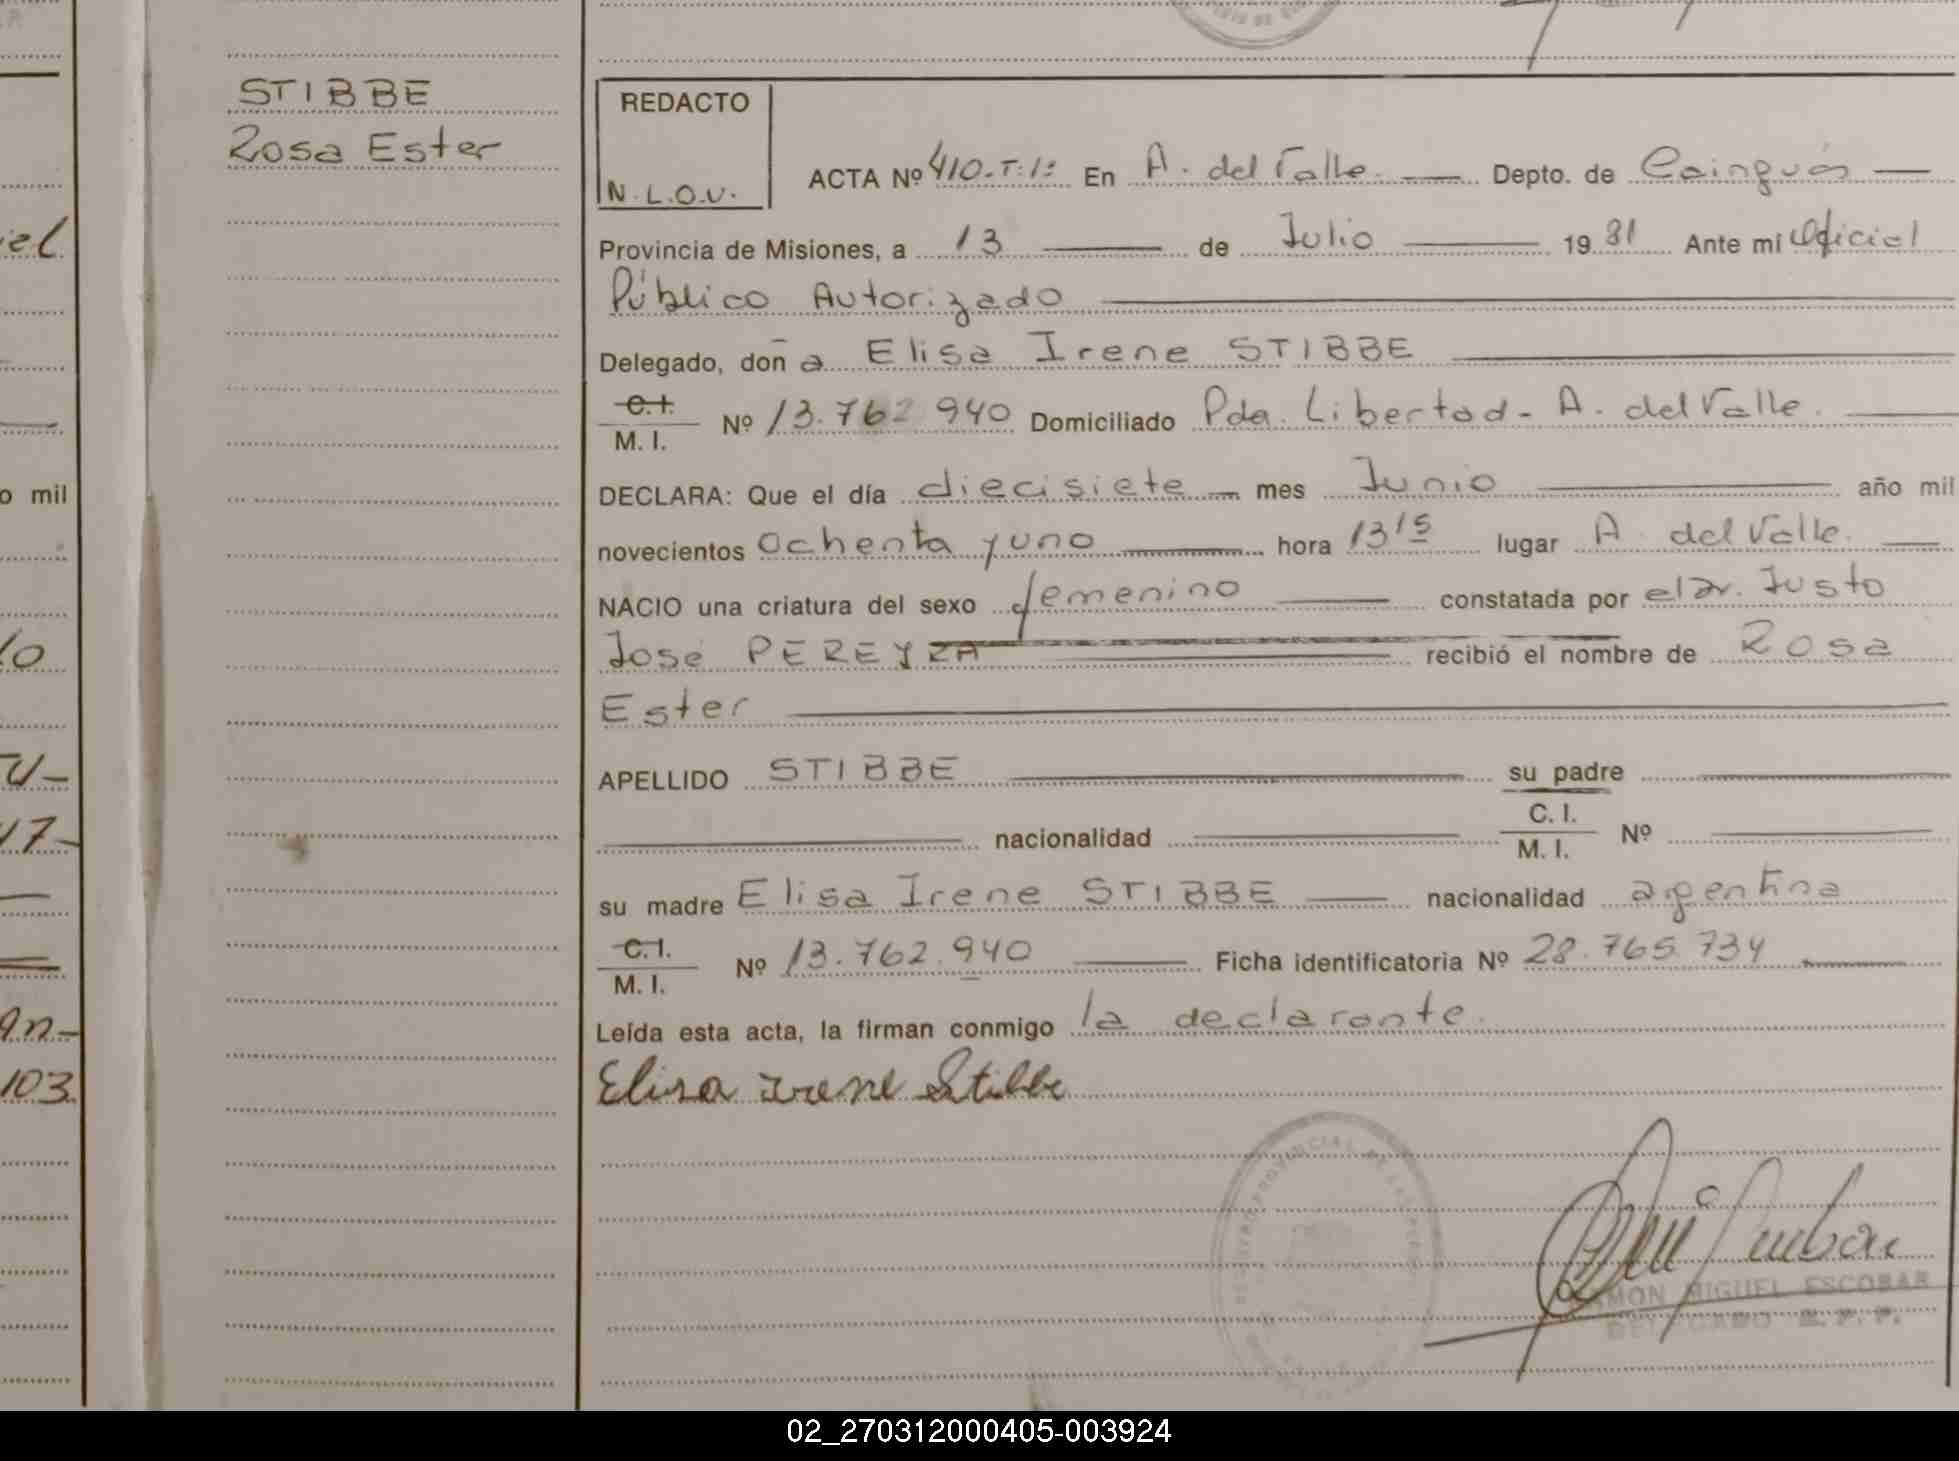 STIBBE
Rosa Ester
iel
o mil
lo
17-
an-
103
REDACTO
N.L.O.V.
ACTA Nº 410-T:1: En A. del Valle. Depto. de Cainguás
Provincia de Misiones, a 13 de Julio 19 81 Ante mi Oficial
Público Autorizado
Delegado, don a Elisa Irene STIBBE
C.I. M. I. Nº 13.762.940 Domiciliado Pda. Libertad - A. del Valle.
DECLARA: Que el día diecisiete mes Junio año mil
novecientos Ochenta y uno hora 13 15 lugar A. del Valle.
NACIO una criatura del sexo femenino constatada por el Dr. Justo
José PEREYRA recibió el nombre de Rosa
Ester
APELLIDO STIBBE su padre
nacionalidad C. I. M. I. Nº
su madre Elisa Irene STIBBE nacionalidad argentina
C.I. M. I. Nº 13.762.940 Ficha identificatoria Nº 28.765.734
Leída esta acta, la firman conmigo la declarante.
Elisa Irene Stibbe
RAMON MIGUEL ESCOBAR
DELEGADO R. P. P.
02_270312000405-003924